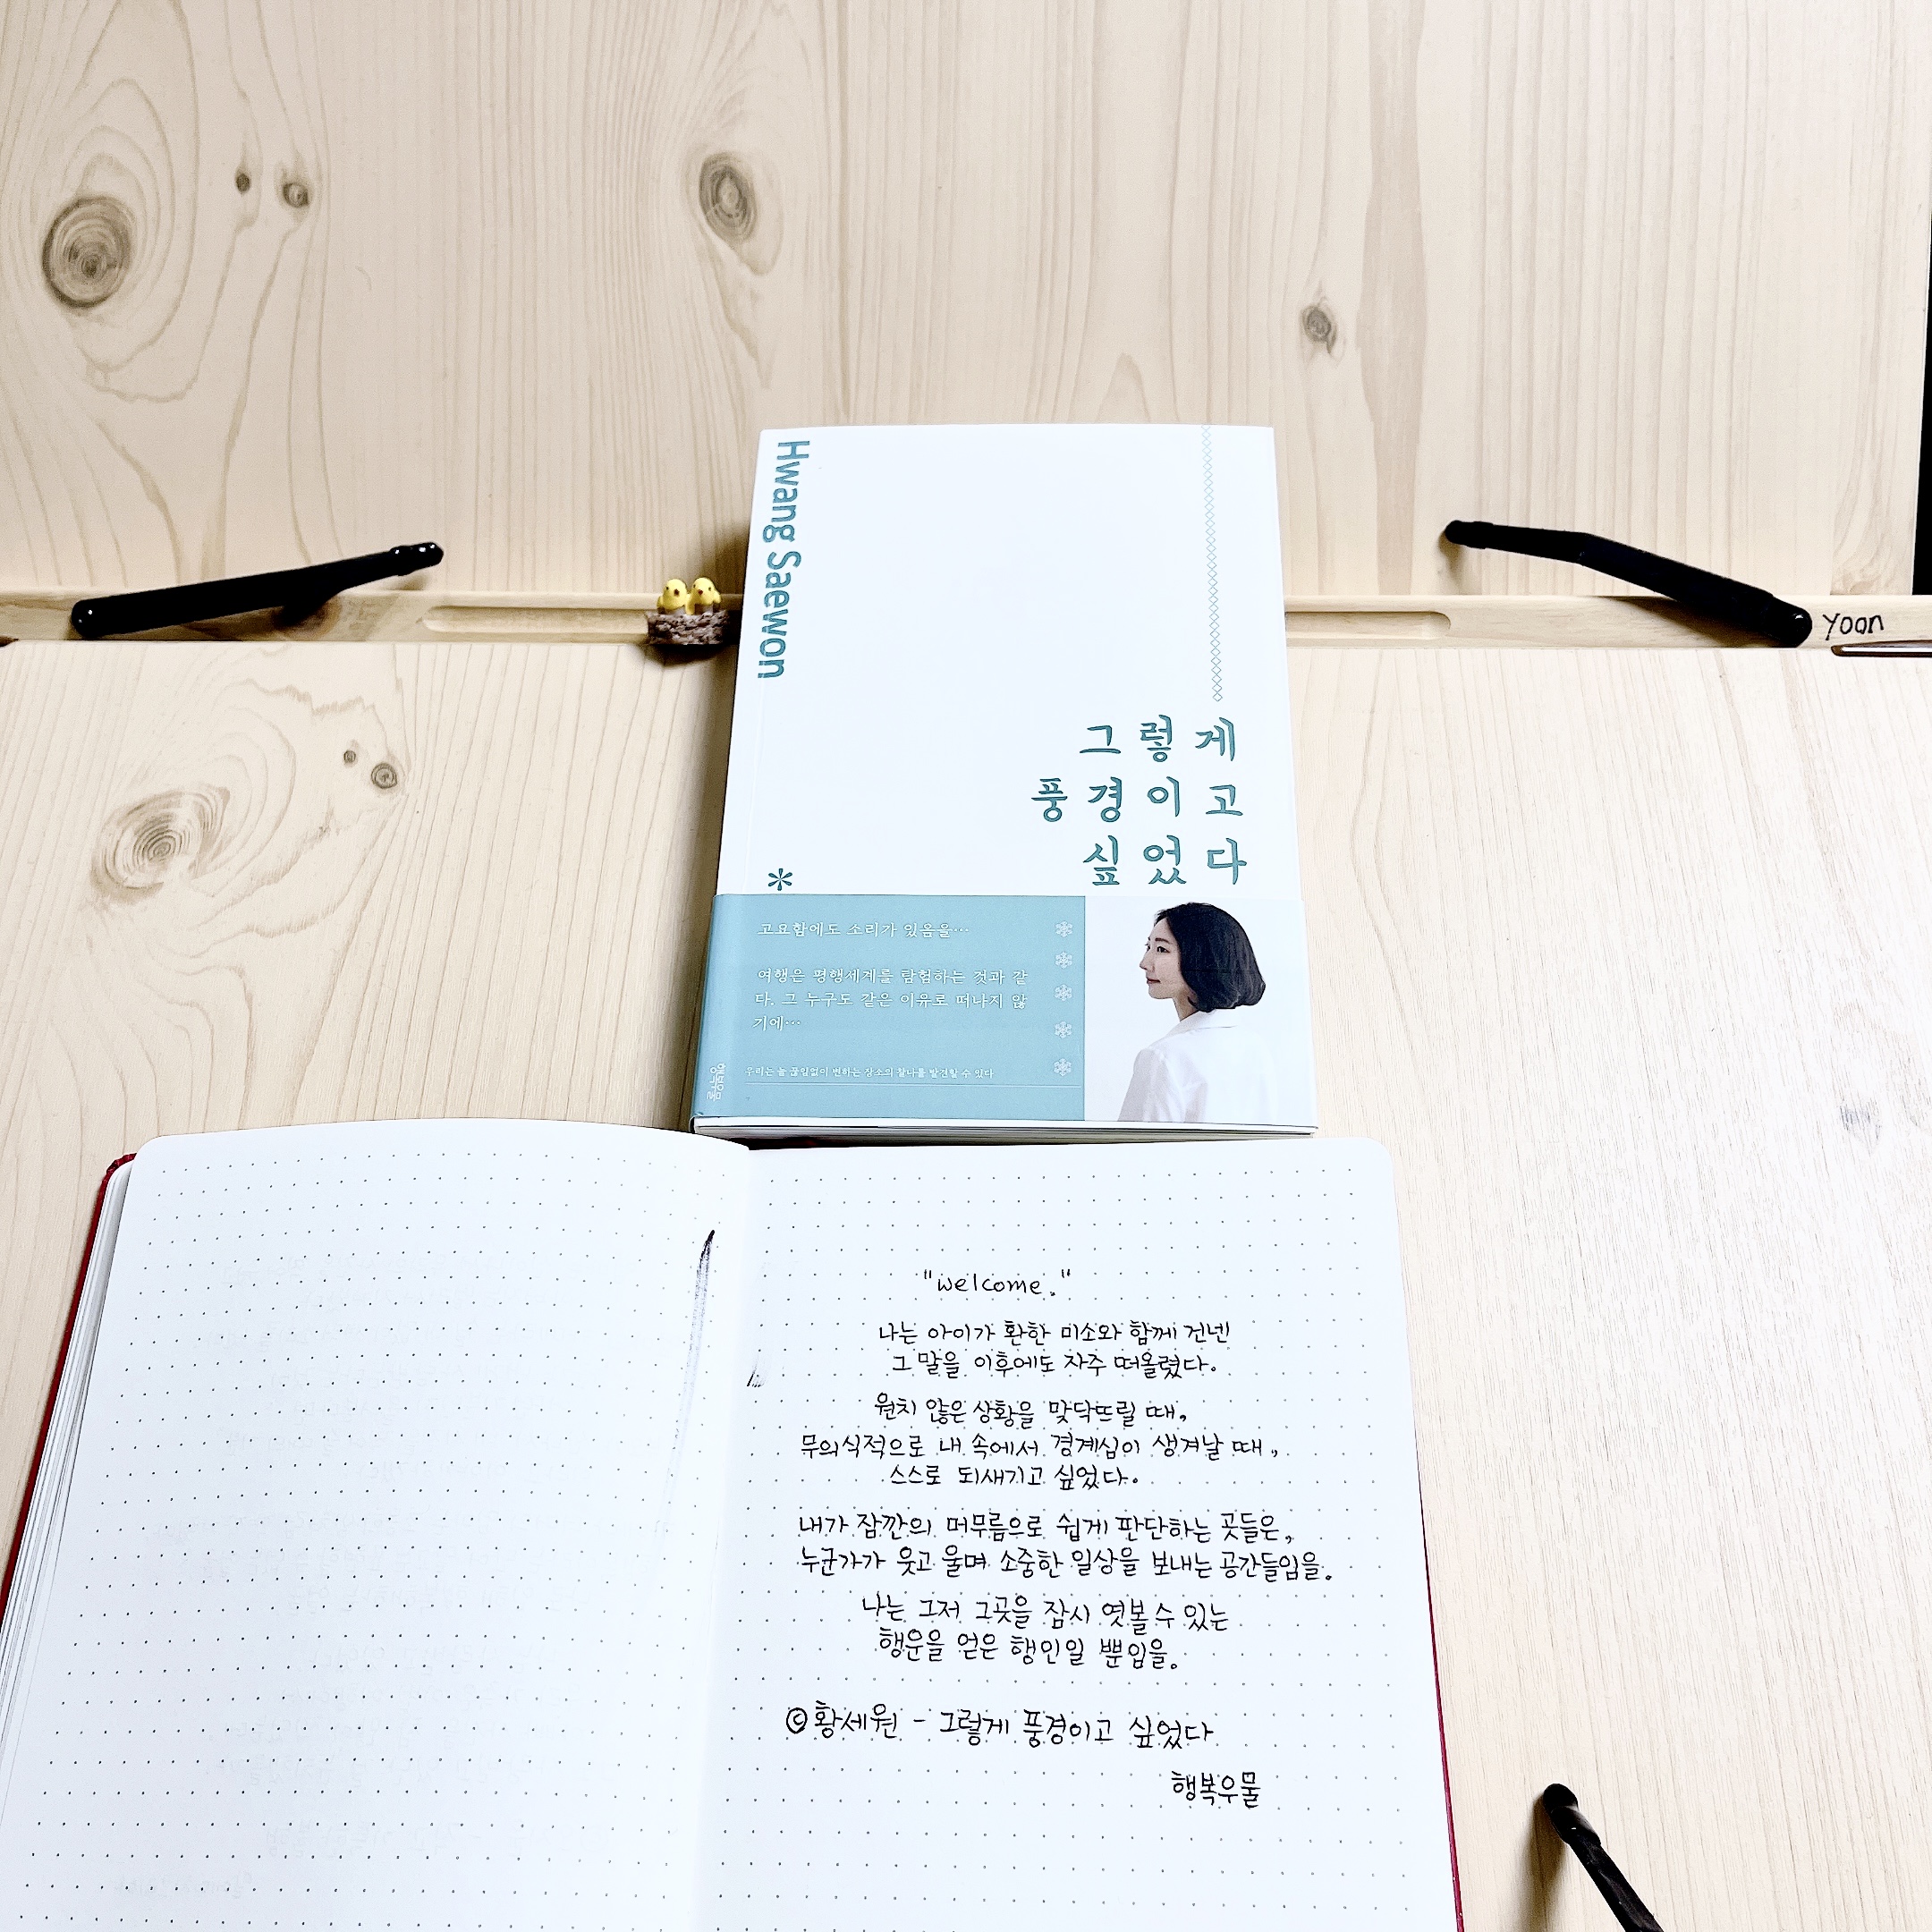 Hwang Saewon
Yoon
그렇게
풍경이고
싶었다
*
고요함에도 소리가 있음을…
여행은 평행세계를 탐험하는 것과 같
다. 그 누구도 같은 이유로 떠나지 않
기에…
우리는 늘 끊임없이 변하는 장소의 찰나를 발견할 수 있다
행복우물
"welcome."
나는 아이가 환한 미소와 함께 건넨
그 말을 이후에도 자주 떠올렸다.
원치 않은 상황을 맞닥뜨릴 때,
무의식적으로 내 속에서 경계심이 생겨날 때,
스스로 되새기고 싶었다.
내가 잠깐의 머무름으로 쉽게 판단하는 곳들은,
누군가가 웃고 울며 소중한 일상을 보내는 공간들임을.
나는 그저 그곳을 잠시 엿볼 수 있는
행운을 얻은 행인일 뿐임을.
©황세원 - 그렇게 풍경이고 싶었다
행복우물